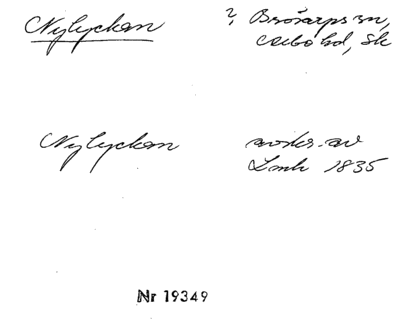 Nylyckan ? Brösarps sn,
Albo hd, Sk
Nylyckan avskr. av
Lmk 1835
Nr 19349